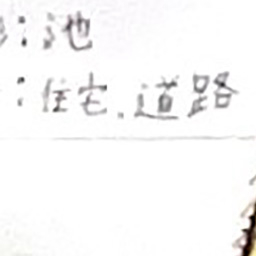 :池
:住宅.道路